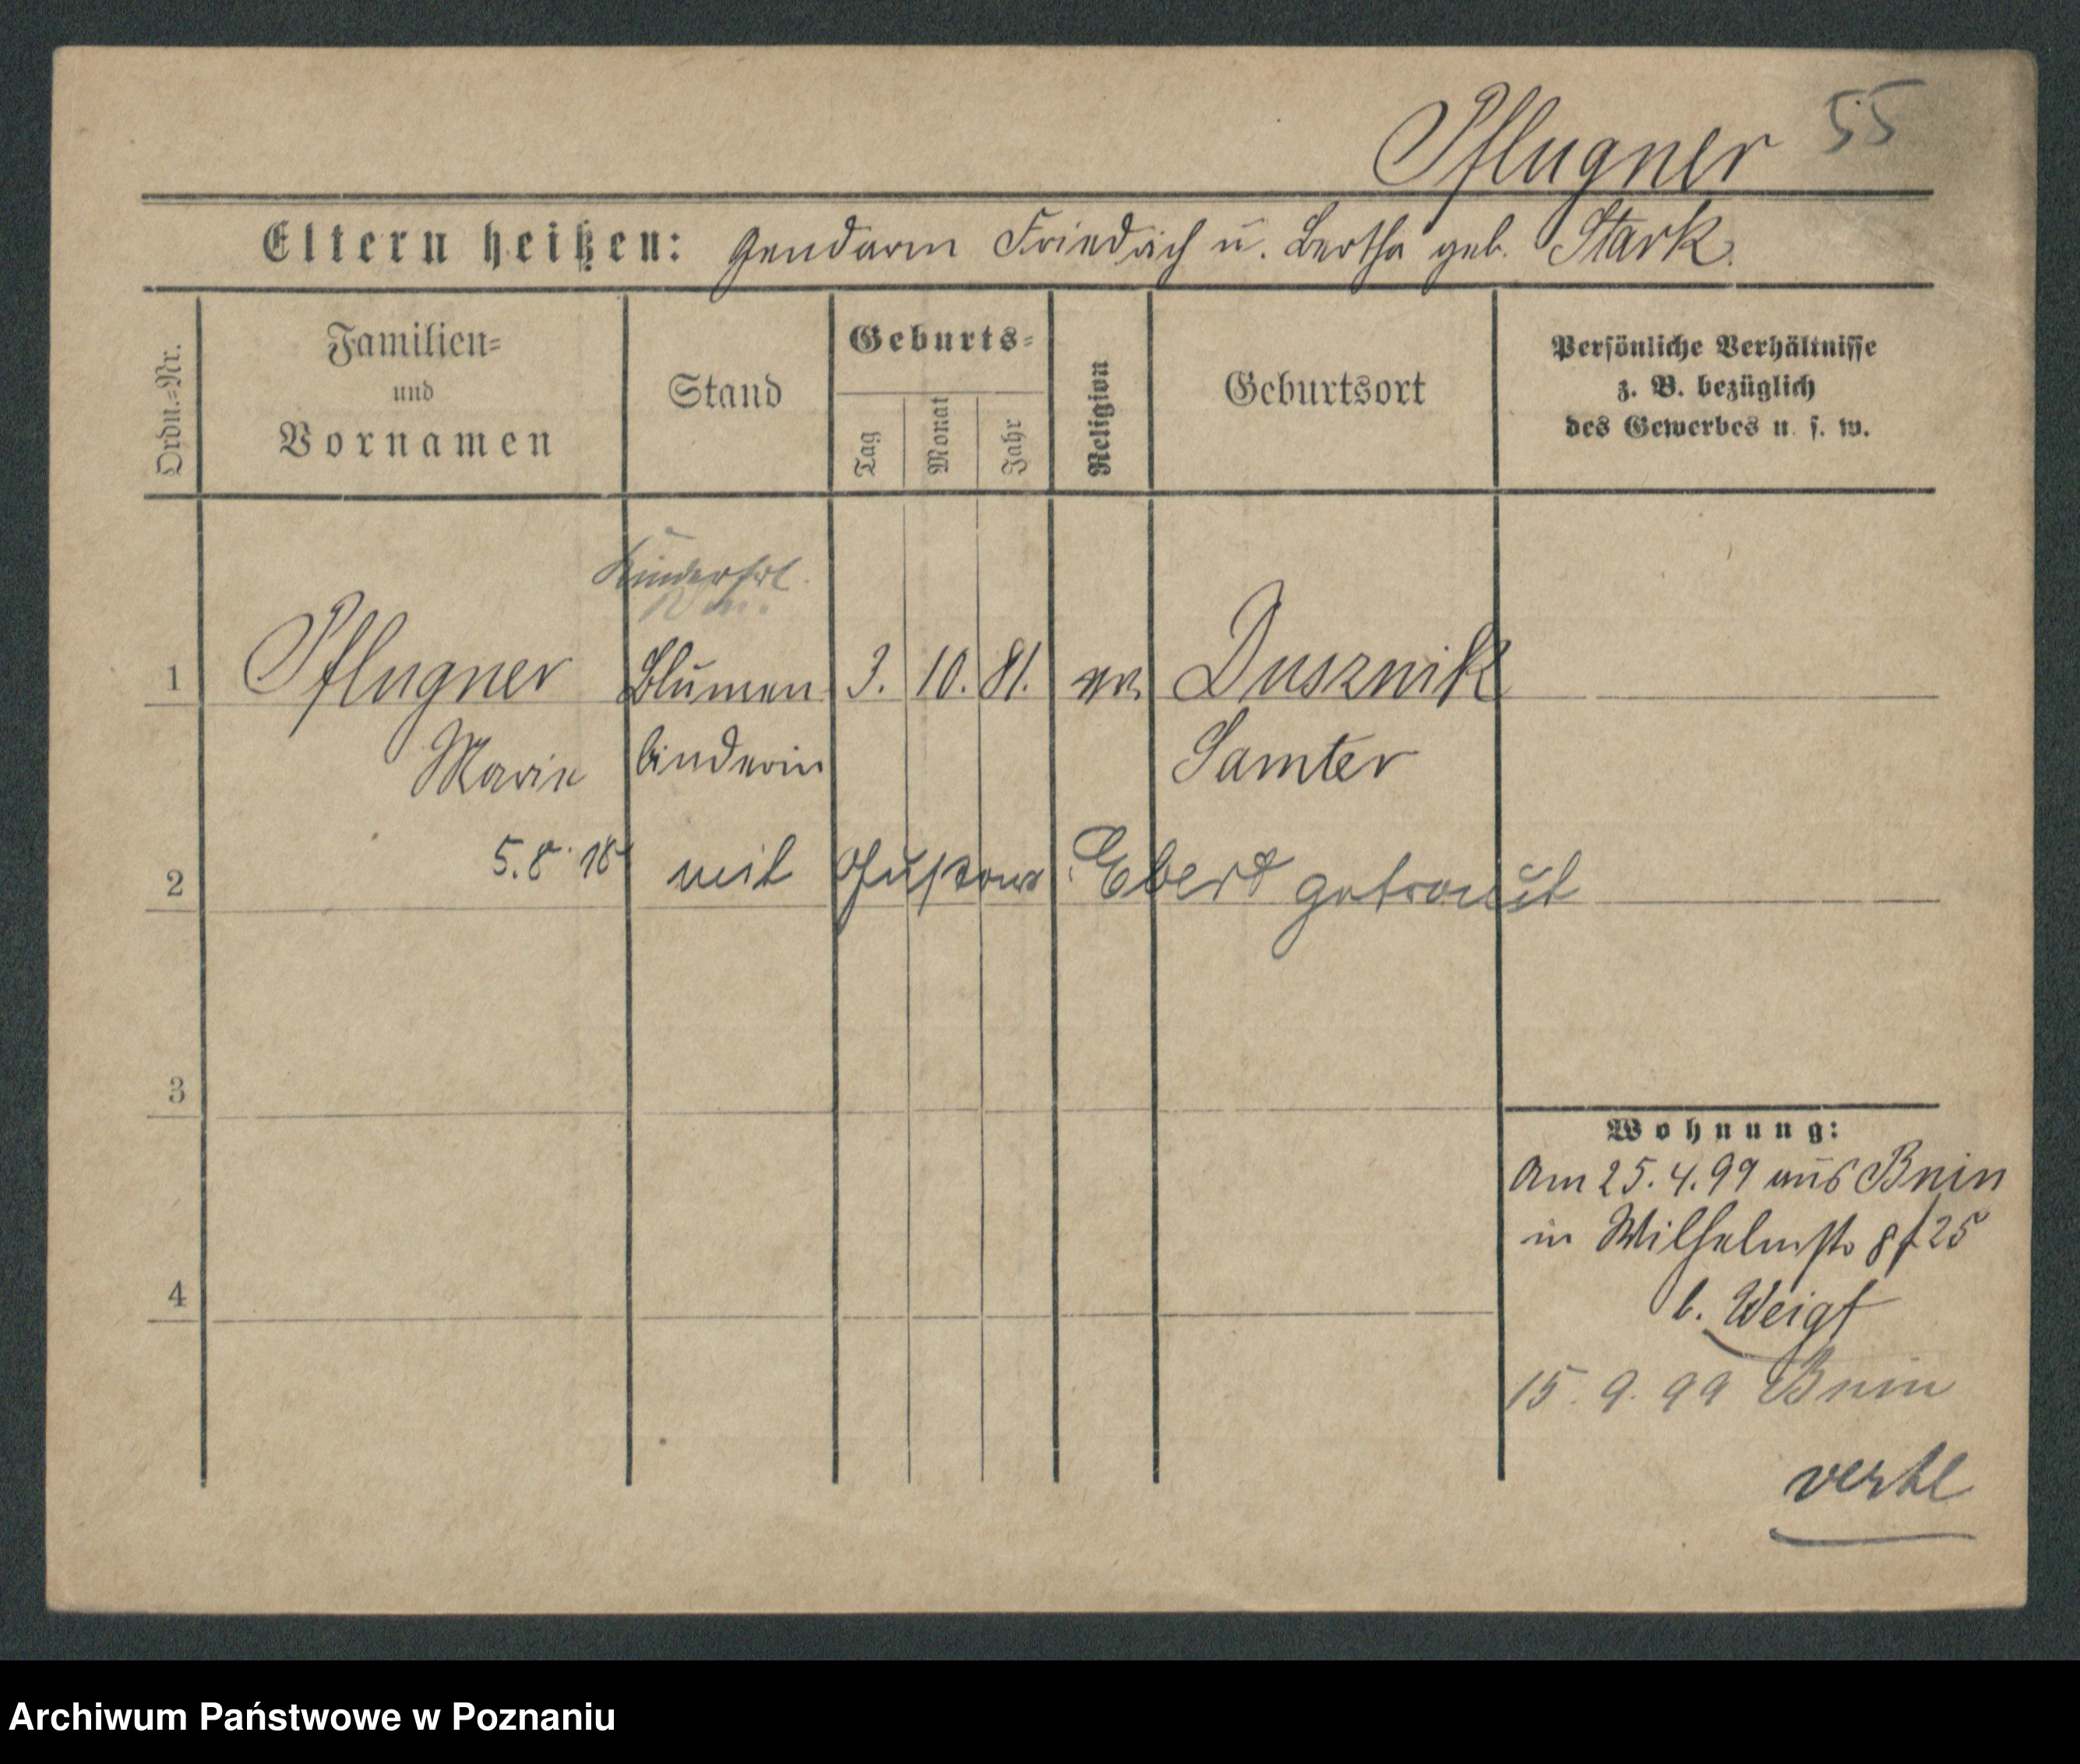 Pflugner 55
Eltern heißen: Gendarm Friedrich u. Bertha geb. Stark.
Ordn.=Nr.
Familien=
und
Vornamen
Stand
Geburts=
Tag
Monat
Jahr
Religion
Geburtsort
Persönliche Verhältnisse
z. B. bezüglich
des Gewerbes u. s. w.
Kinderfrl.
1 Pflugner Blumen 3. 10. 81. ev. Dusznik
Marie binderin Samter
2 5.8.18 mit Gustav Ebert getraut
3
Wohnung:
Am 25.4.99 aus Bnin
in Wilhelmstr 8/25
4
b. Weigt
15.9.99 Bnin
Archiwum Państwowe w Poznaniu